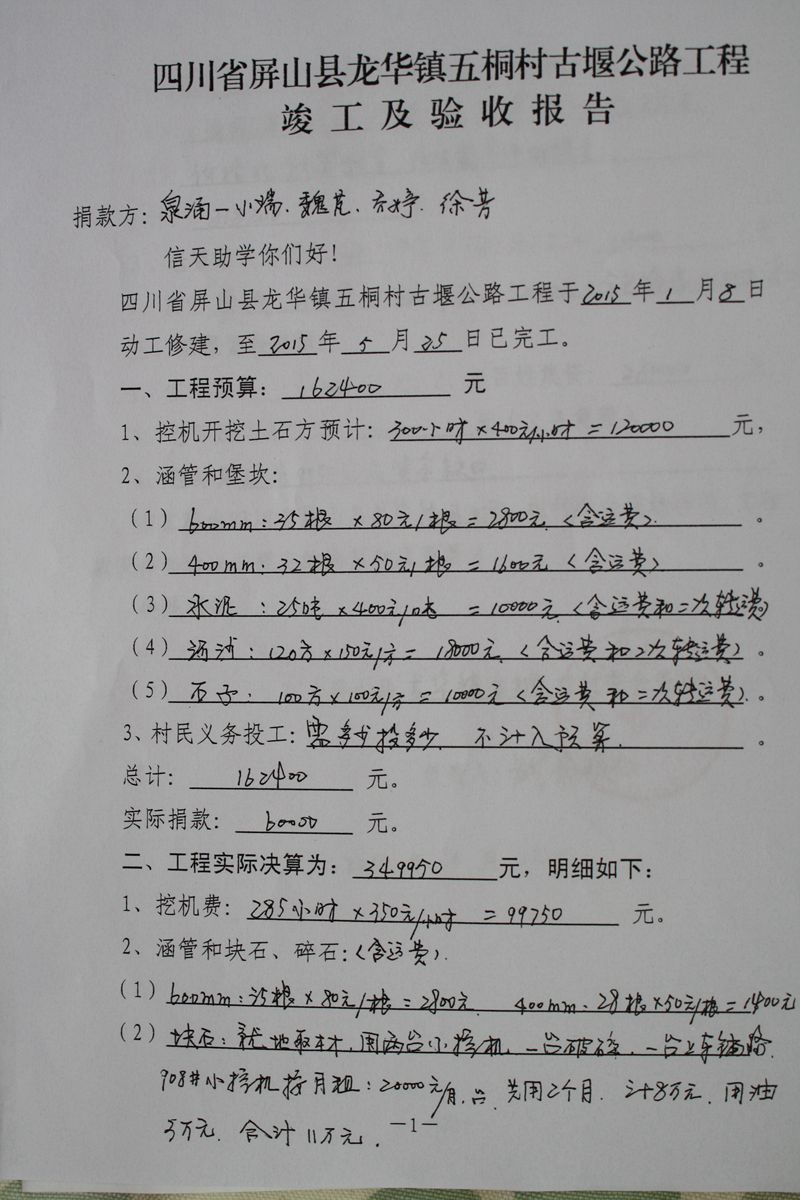 四川省屏山县龙华镇五桐村古堰公路工程
竣工及验收报告
捐款方：泉涌一小瑞、魏芃、齐婷、徐芳
信天助学你们好！
四川省屏山县龙华镇五桐村古堰公路工程于2015年1月8日
动工修建，至2015年5月25日已完工。
一、工程预算：162400元
1、控机开挖土石方预计：300小时×400元/小时=120000元，
2、涵管和堡坎：
（1）600mm：35根×80元/根=2800元（含运费）。
（2）400mm：32根×50元/根=1600元（含运费）。
（3）水泥：25吨×400元/吨=10000元（含运费和二次转运费）
（4）河沙：120方×150元/方=18000元（含运费和二次转运费）。
（5）石子：100方×100元/方=10000元（含运费和二次转运费）。
3、村民义务投工：需多少投多少，不计入预算。
总计：162400元。
实际捐款：60000元。
二、工程实际决算为：349950元，明细如下：
1、挖机费：285小时×350元/小时=99750元。
2、涵管和块石、碎石：（含运费）.
（1）600mm：35根×80元/根=2800元 400mm：28根×50元/根=1400元
（2）块石：就地取材，用两台小挖机，一台破碎，一台上车铺路.
908#小挖机按月租：20000元/月.台 共用2个月. 计8万元. 用油
3万元. 合计11万元.
—1—